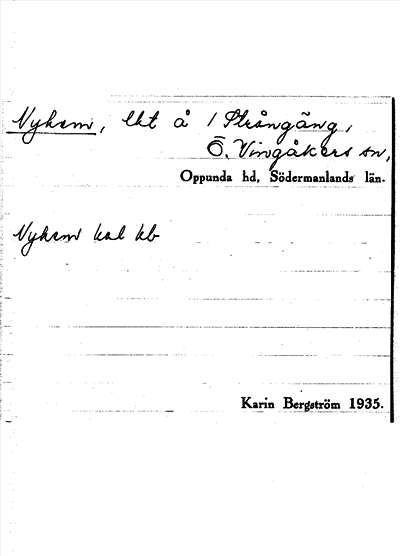 Nyhem, lht å 1 Strångäng,
Ö. Vingåkers sn,
Oppunda hd, Södermanlands län.
Nyhem kal kb
Karin Bergström 1935.